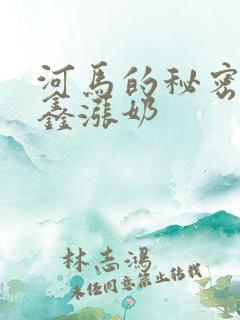 河馬的秘密
鑫漲奶
林志鴻
未經同意禁止轉載